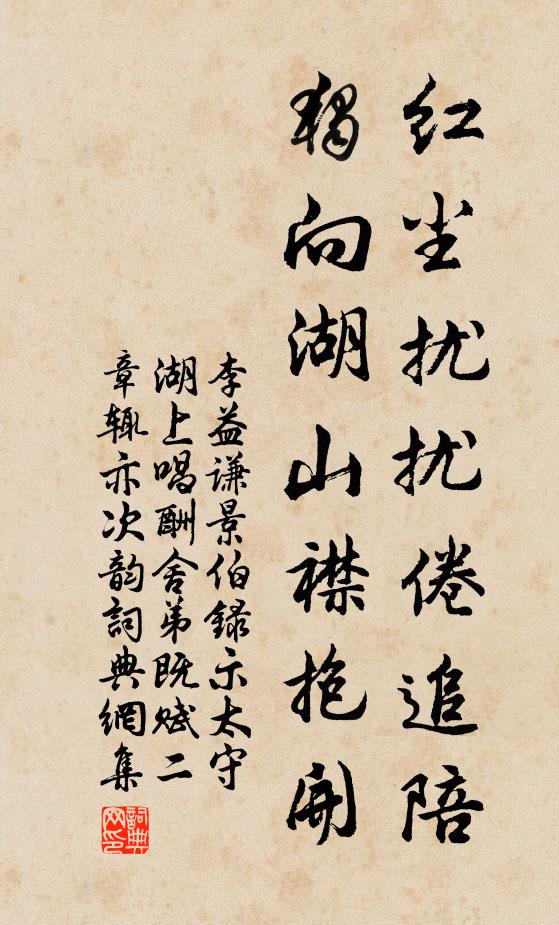 红尘扰扰倦追陪
独向湖山襟抱开
李益谦景伯録示太守
湖上唱酬舍弟既赋二
章辄亦次韵詞典網集
詞典
网印